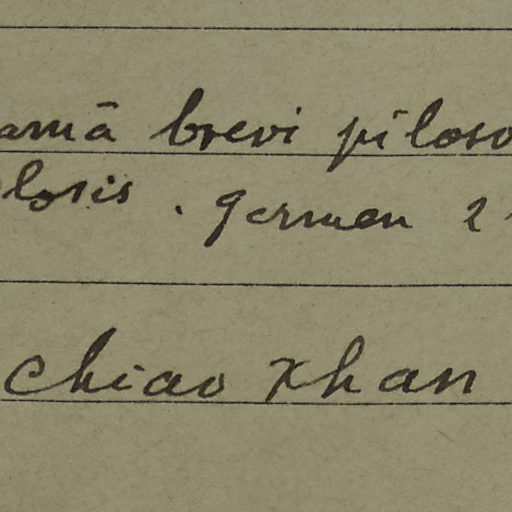 amā brevi piloso
losis. germen 2
Chiao Xhan